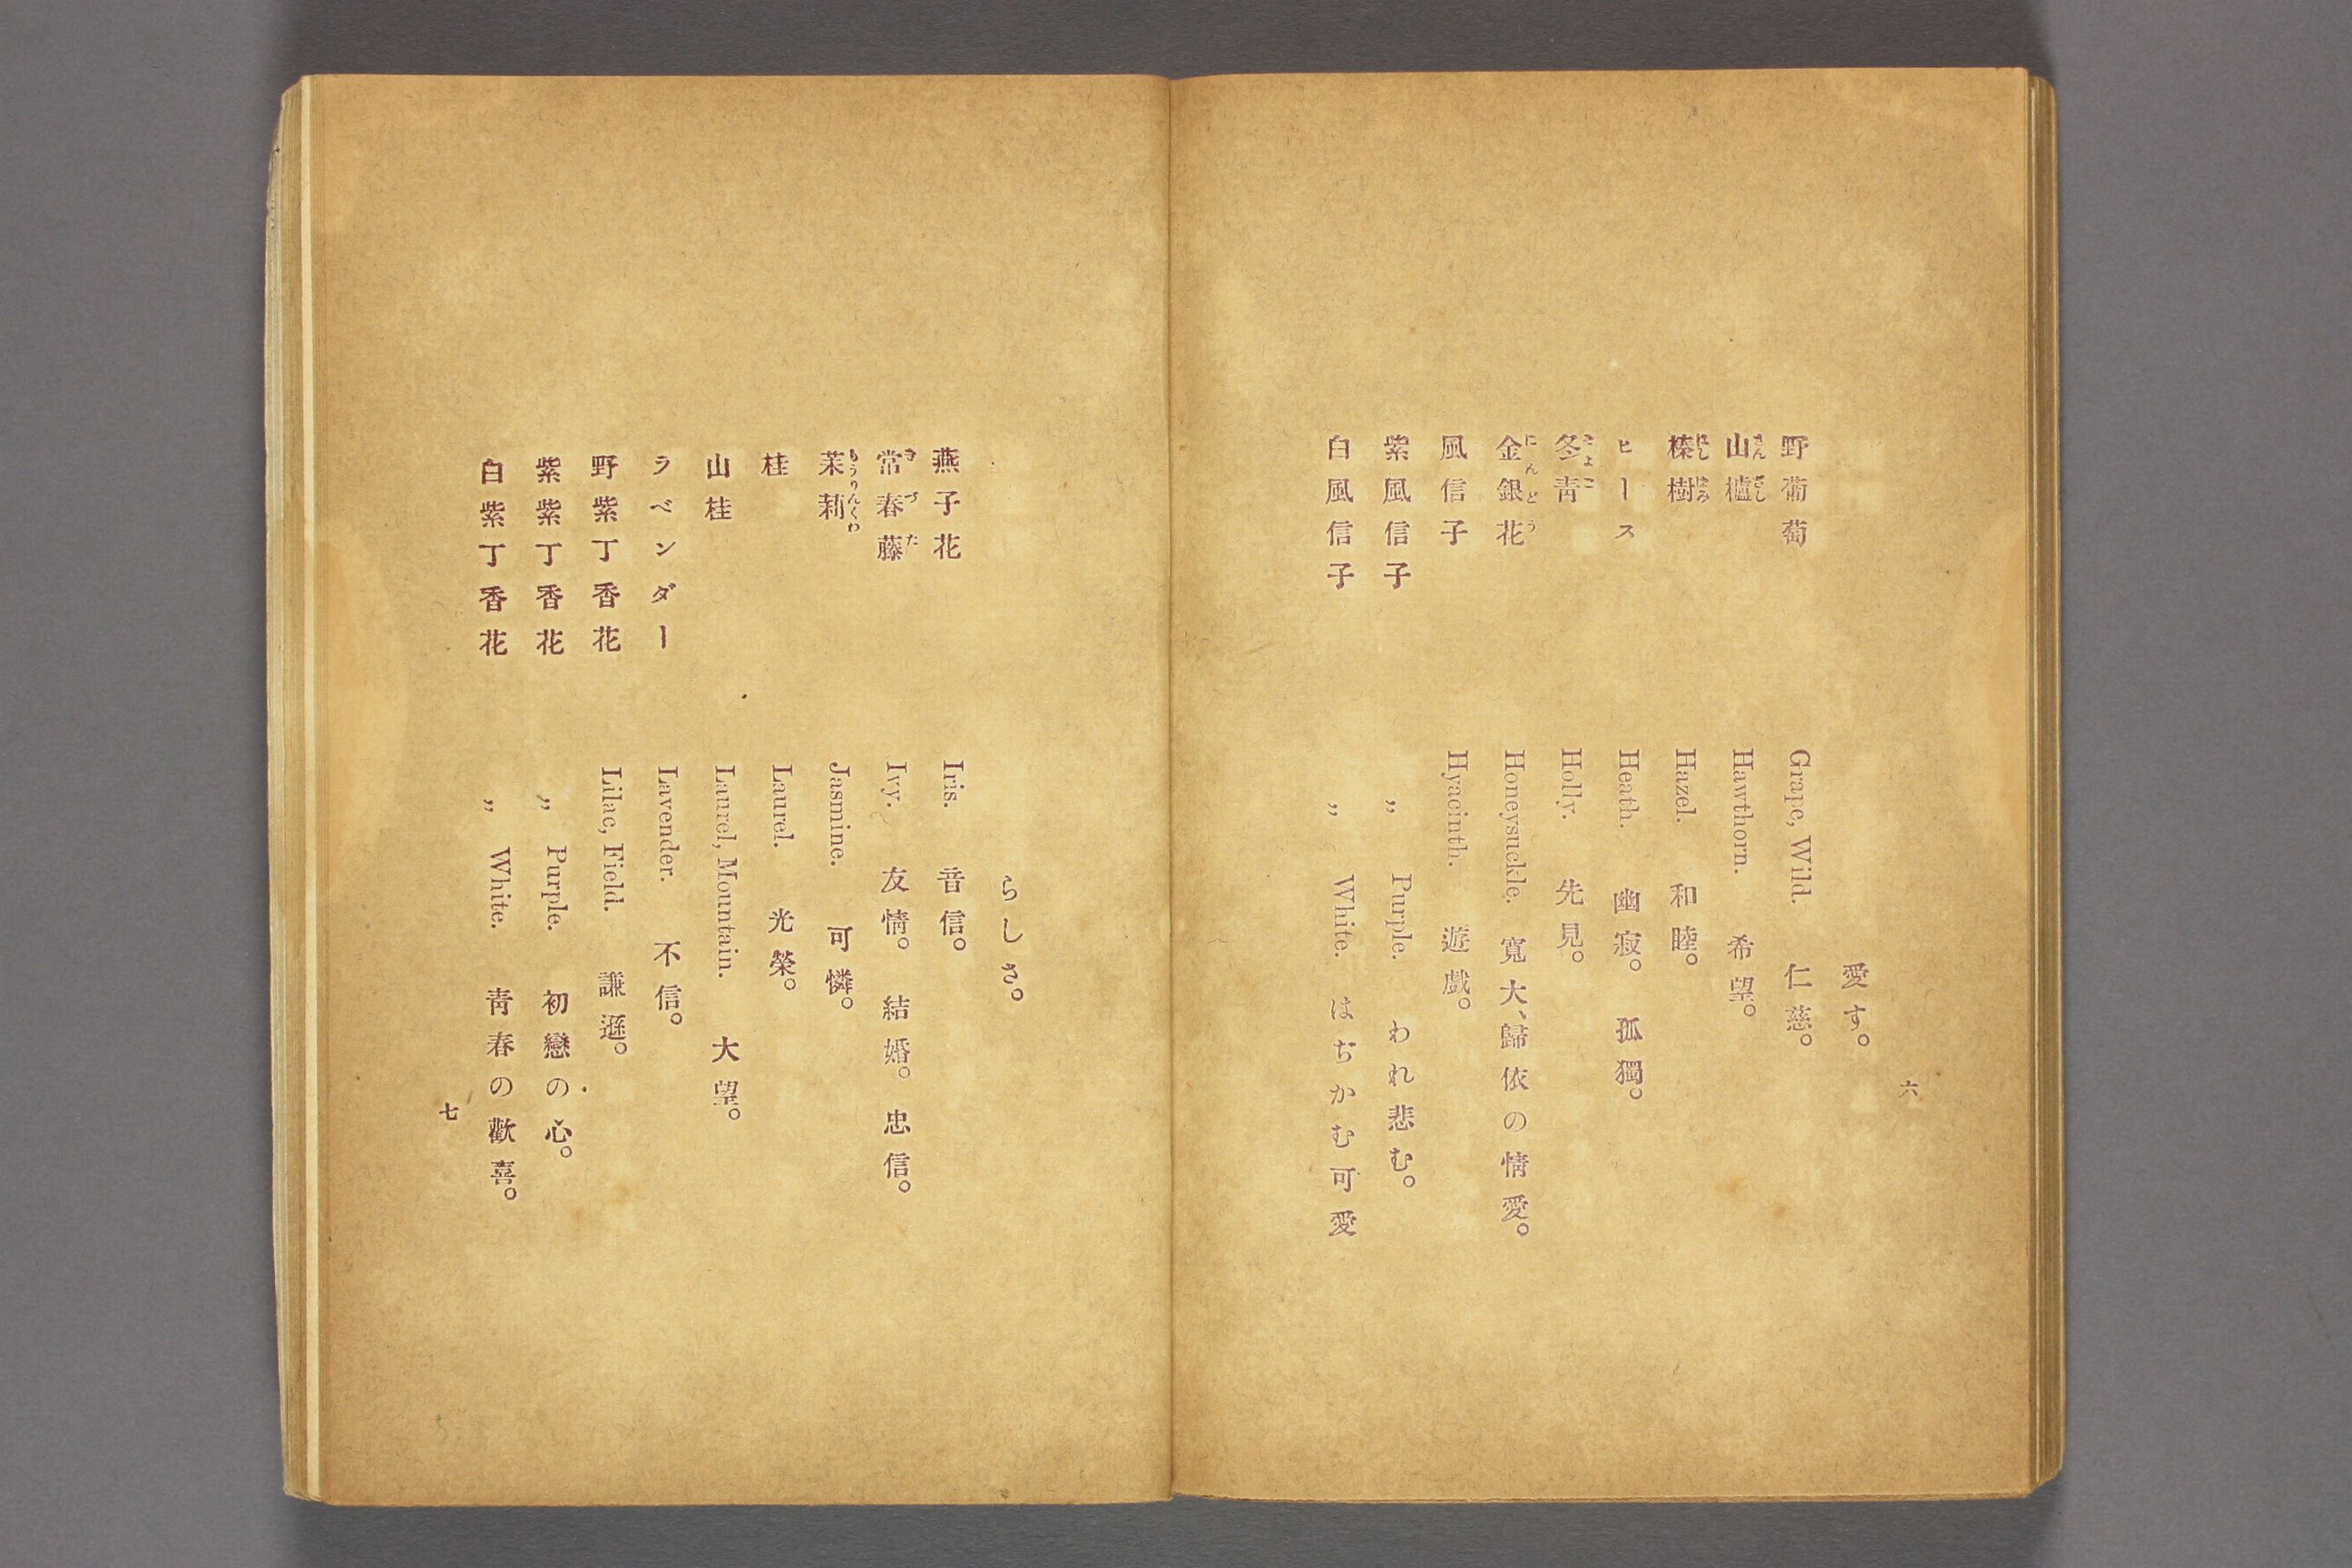 六
愛す。
野葡萄 Grape, Wild. 仁慈。
山樝 Hawthorn. 希望。
榛樹 Hazel. 和睦。
ヒース Heath. 幽寂。孤獨。
冬靑 Holly. 先見。
金銀花 Honeysuckle. 寬大、歸依の情愛。
風信子 Hyacinth. 遊戲。
紫風信子 〃 Purple. われ悲む。
白風信子 〃 White. はぢかむ可愛
らしさ。
燕子花 Iris. 音信。
常春藤 Ivy. 友情。結婚。忠信。
茉莉 Jasmine. 可憐。
桂 Laurel. 光榮。
山桂 Laurel, Mountain. 大望。
ラベンダー Lavender. 不信。
野紫丁香花 Lilac, Field. 謙遜。
紫紫丁香花 〃 Purple. 初戀の心。
白紫丁香花 〃 White. 靑春の歡喜。
七